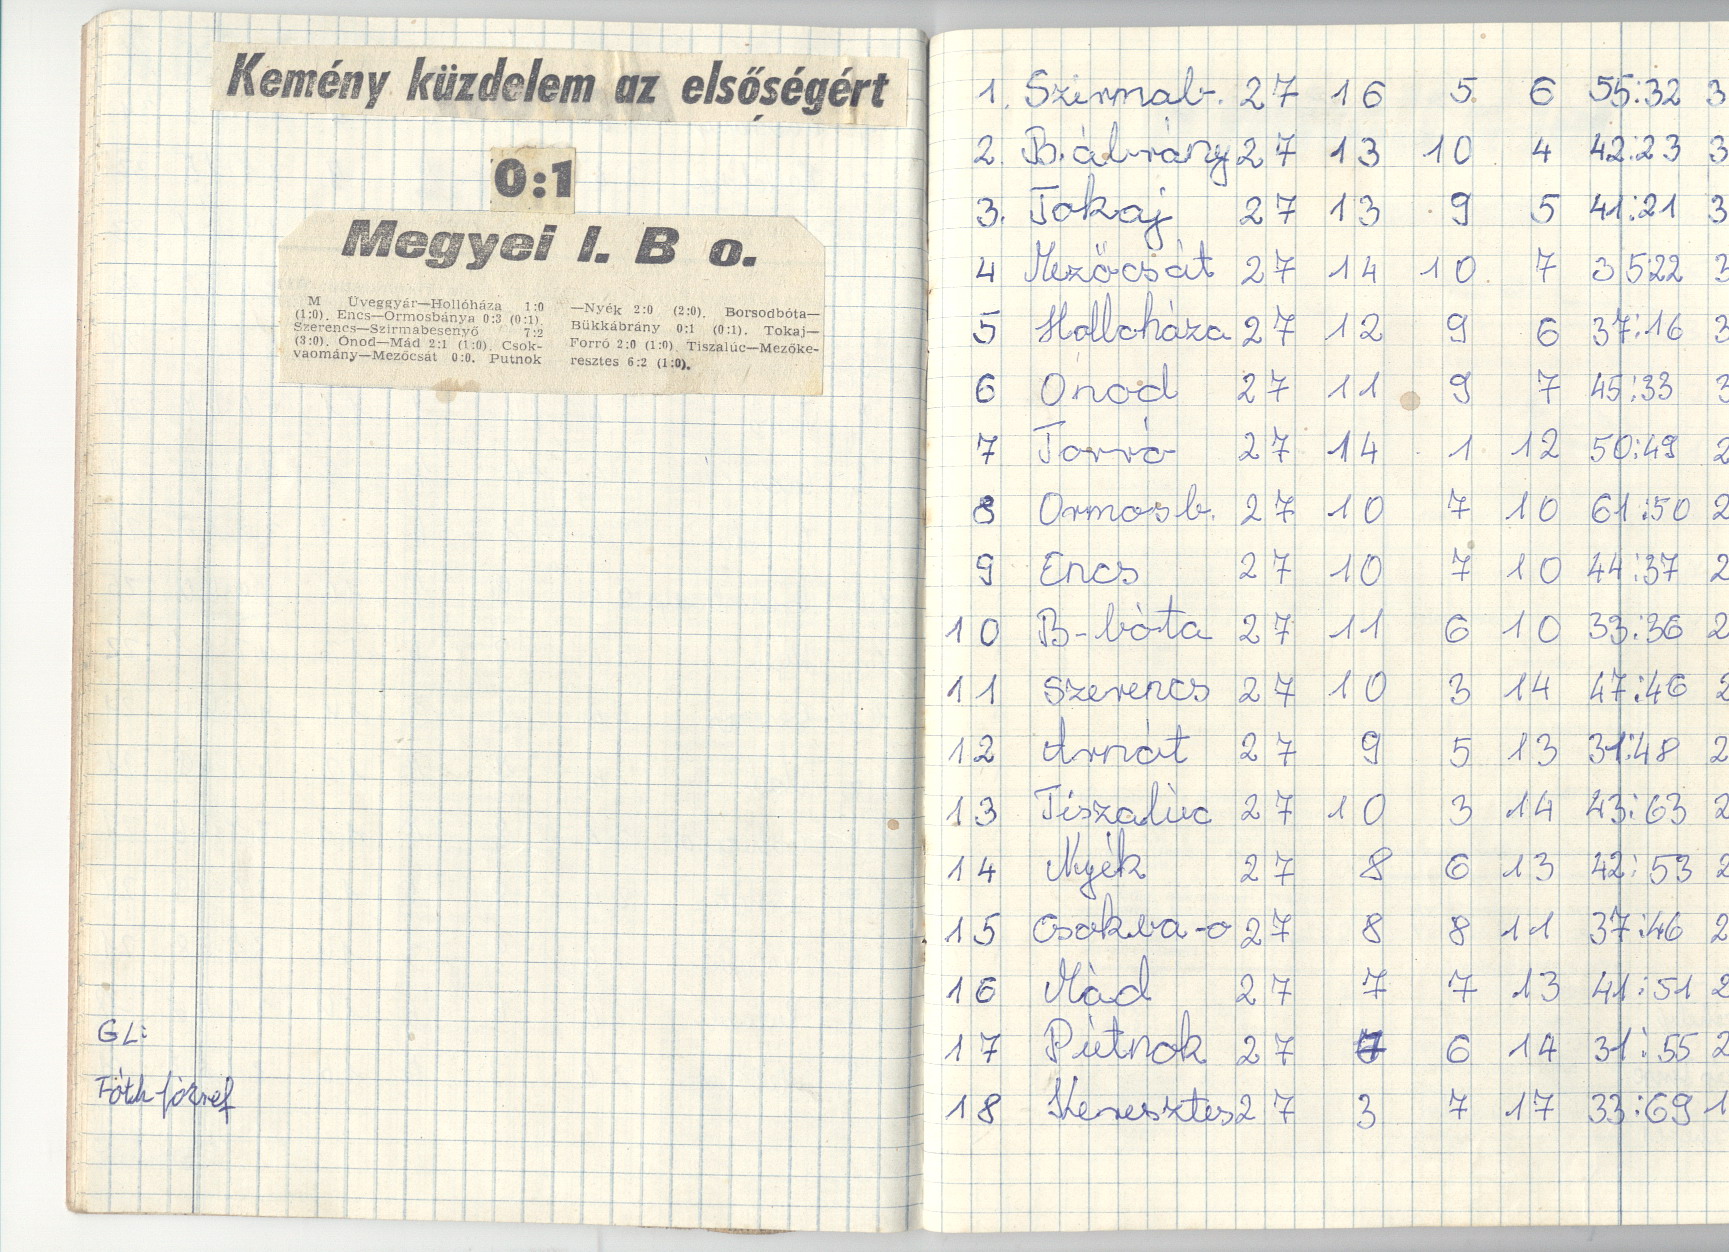 Kemény küzdelem az elsőségért
0:1
Megyei I. B o.
M Üveggyár—Hollóháza 1:0
(1:0). Encs—Ormosbánya 0:3 (0:1).
Szerencs—Szirmabesenyő 7:2
(3:0). Ónod—Mád 2:1 (1:0). Csok-
vaomány—Mezőcsát 0:0. Putnok
—Nyék 2:0 (2:0). Borsodbóta—
Bükkábrány 0:1 (0:1). Tokaj—
Forró 2:0 (1:0). Tiszalúc—Mezőke-
resztes 6:2 (1:0).
GL:
Tóth József
1. Szirmab. 27 16 5 6 55:32 3
2. B.ábrány 27 13 10 4 42:23 3
3. Tokaj 27 13 9 5 41:21 3
4 Mezőcsát 27 14 10 7 35:22 3
5 Hollóháza 27 12 9 6 37:16 3
6 Ónod 27 11 9 7 45:33 3
7 Forró 27 14 1 12 50:49 2
8 Ormosb. 27 10 7 10 61:50 2
9 Encs 27 10 7 10 44:37 2
10 B-bóta 27 11 6 10 33:36 2
11 Szerencs 27 10 3 14 47:46 2
12 Arnót 27 9 5 13 31:48 2
13 Tiszalúc 27 10 3 14 43:63 2
14 Nyék 27 8 6 13 42:53 2
15 Csokva-o 27 8 8 11 37:46 2
16 Mád 27 7 7 13 41:51 2
17 Pútnok 27 7 6 14 31:55 2
18 Keresztes 27 3 7 17 33:69 1